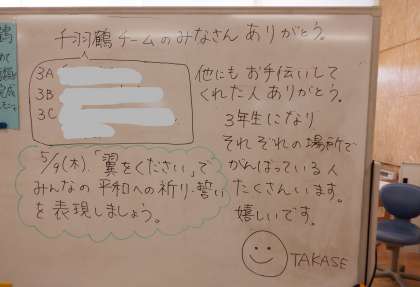 千羽鶴チームのみなさん ありがとう。
3A
3B
3C
他にも お手伝いして
くれた人 ありがとう。
3年生になり
それぞれの場所で
がんばっている人
たくさんいます。
嬉しいです。
5/9(木)、「翼をください」で
みんなの 平和への祈り・誓い
を 表現しましょう。
TAKASE
鶴
完成